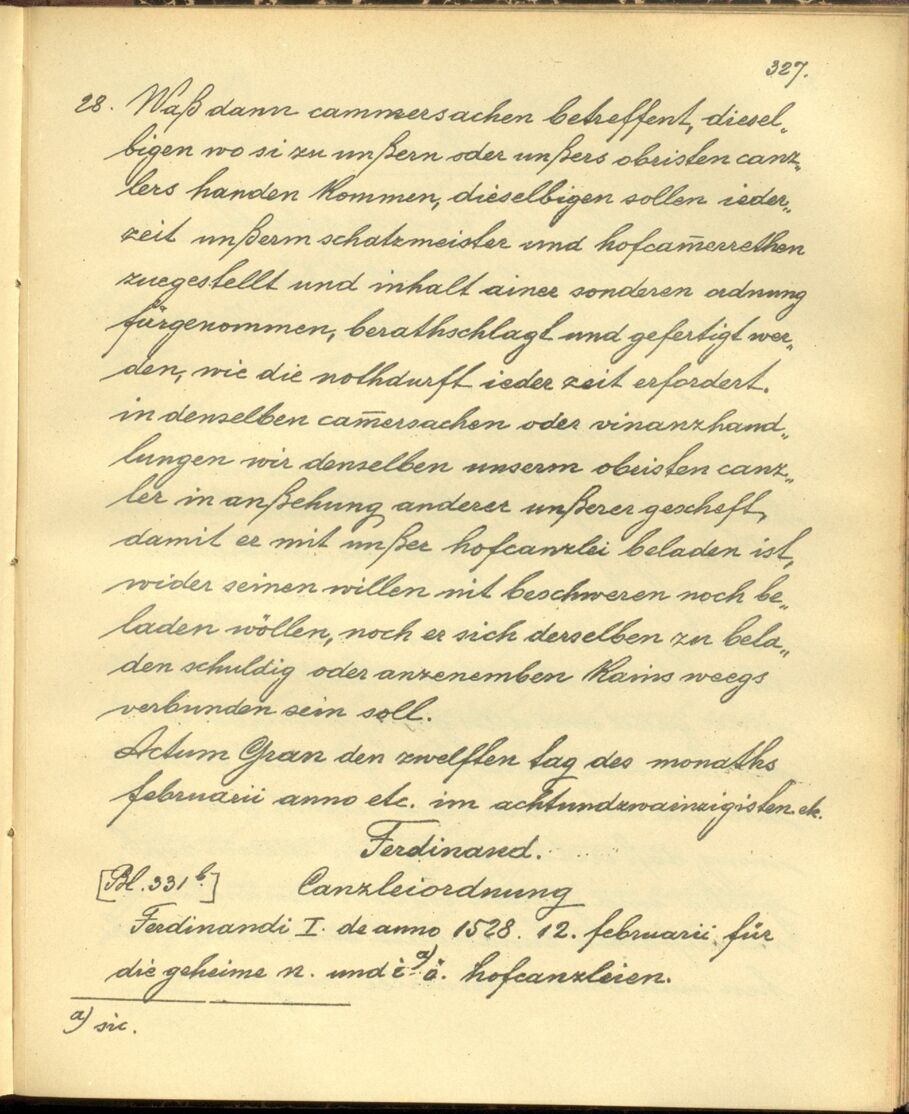 327.
28. Waß dann cammersachen betreffent, diesel„
bigen wo si zu unßern oder unßers obristen canz„
lers handen kommen, dieselbigen sollen ieder„
zeit unßerm schatzmeister und hofcam̅errethen
zuegestellt und inhalt ainer sonderen ordnung
fürgenommen, berathschlagt und gefertigt wer„
den, wie die nothdurft ieder zeit erfordert.
in denselben cam̅ersachen oder vinanzhand„
lungen wir denselben unserm obristen canz„
ler in anßehung anderer unßerer gescheft,
damit er mit unßer hofcanzlei beladen ist,
wider seinen willen nit beschweren noch be„
laden wöllen, noch er sich derselben zu bela„
den schuldig oder anzenemben kains weegs
verbunden sein soll.
Actum Gran den zwelften tag des monaths
februarii anno etc. im achtundzwainzigisten etc.
Ferdinand.
[Bl. 331 b.] Canzleiordnung
Ferdinandi I. de anno 1528. 12. februarii für
die geheime n. und i a) ö. hofcanzleien.
a) sic.